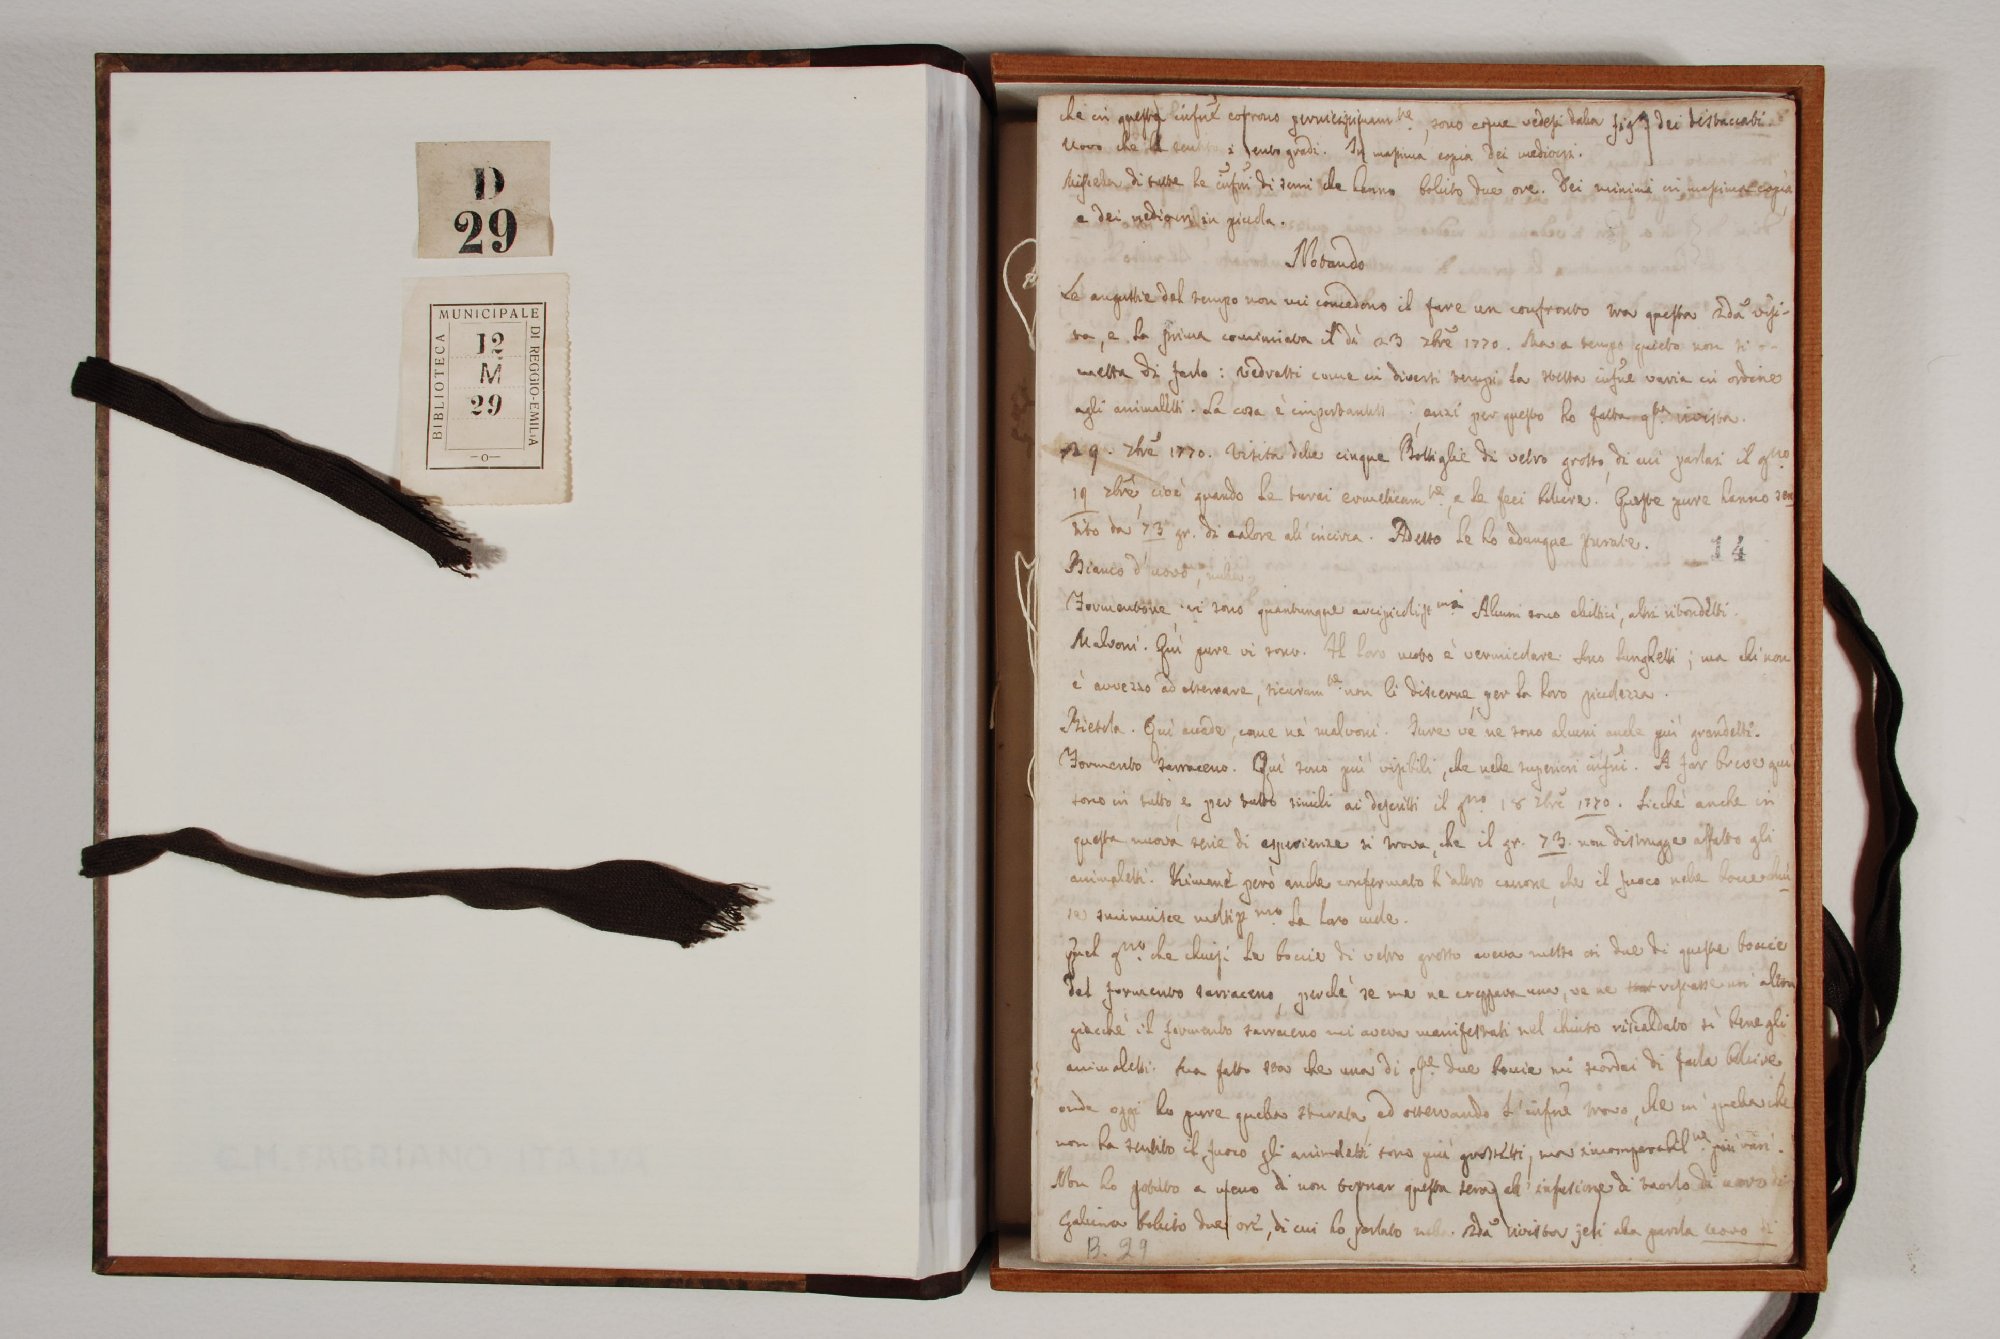 D
29
MUNICIPALE
BIBLIOTECA
DI REGGIO-EMILIA
12
M
29
—o—
C.M. FABRIANO ITALIA
che in questa infu.e corrono, sono come vedesi dalla fig. dei distaccati.
Uovo che ha sentito gradi. In massima copia dei mediocri.
di tutte le infu.i di semi che hanno bolito due ore. Dei minimi in massima copia,
e dei mediocri in picola.
Notando
Le angustie del tempo non mi concedono il fare un confronto tra questa 2da visi-
ta, e la prima cominciata il dì 23 2bre 1770. Ma a tempo quieto non si
metta di farlo: vedrassi come in diversi tempi la stessa infu.e varia in ordine
agli animaletti. La cosa è importante: anzi per questo ho fatta q.ta rivista.
29. 2bre 1770. Visita delle cinque Bottiglie di vetro grosso, di cui parlasi il g.no
19 2bre, cioè quando le turai ermeticam.te, e le feci bolire. Queste pure hanno sen
tito da 73 gr. di calore all'incirca. Adesso le ho adunque sturate.
Bianco d'uovo, nulla
Formentone vi sono quantunque arcipicoliss.mi Alcuni sono elittici, altri ritondetti.
Malvoni. Quì pure vi sono. Il loro moto è vermicolare. Sono lunghetti; ma chi non
è avvezzo ad osservare, sicuram.te non li discerne, per la loro picolezza.
Bietola. Quì accade, come ne' malvoni. Pure ve ne sono alcuni anche più grandetti.
Formento sarraceno. Quì sono più visibili, che nelle superiori infu.i. A far breve quì
sono in tutto, e per tutto simili ai descritti il g.no 18 2bre 1770. Sicchè anche in
questa nuova serie di esperienze si trova, che il gr. 73. non distrugge affatto gli
animaletti. Rimane però anche confermato l'altro canone, che il fuoco nelle bocce chiu
se sminuisce moltiss.mo la loro mole.
Quel g.no che chiusi le boccie di vetro grosso aveva messo in due di queste boccie
del formento sarraceno, perchè se me ne creppava una, ve ne restasse un altra,
giacchè il formento sarraceno mi aveva manifestati nel chiuso riscaldato sì bene gli
animaletti. Ma fatto sta che una di q.ste due boccie mi scordai di farla bolire,
onde oggi ho pure quella sturata, ed osservando l'infu.e trovo, che in quella che
non ha sentito il fuoco gli animaletti sono più grossetti, ma incomparabil.te più rari.
Non ho potuto a meno di non tornar questa sera all'infusione di tuorlo di uovo di
Galina bolito due ore, di cui ho parlato nella 2da rivista jeri alla parola uovo di
14
B. 29